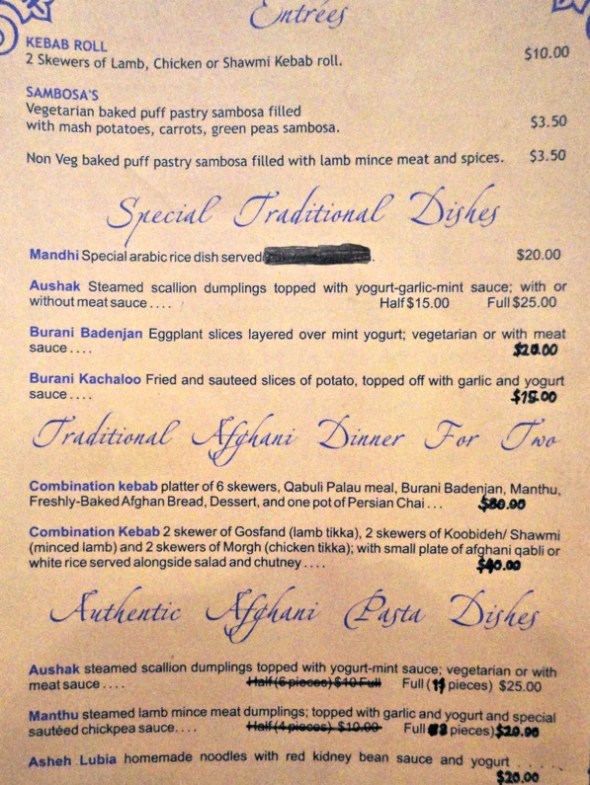 Entrées
KEBAB ROLL
2 Skewers of Lamb, Chicken or Shawmi Kebab roll. $10.00
SAMBOSA'S
Vegetarian baked puff pastry sambosa filled
with mash potatoes, carrots, green peas sambosa. $3.50
Non Veg baked puff pastry sambosa filled with lamb mince meat and spices. $3.50
Special Traditional Dishes
Mandhi Special arabic rice dish served $20.00
Aushak Steamed scallion dumplings topped with yogurt-garlic-mint sauce; with or
without meat sauce.... Half $15.00 Full $25.00
Burani Badenjan Eggplant slices layered over mint yogurt; vegetarian or with meat
sauce....
Burani Kachaloo Fried and sauteed slices of potato, topped off with garlic and yogurt
sauce.... $15.00
Traditional Afghani Dinner For Two
Combination kebab platter of 6 skewers, Qabuli Palau meal, Burani Badenjan, Manthu,
Freshly-Baked Afghan Bread, Dessert, and one pot of Persian Chai...
Combination Kebab 2 skewer of Gosfand (lamb tikka), 2 skewers of Koobideh/ Shawmi
(minced lamb) and 2 skewers of Morgh (chicken tikka); with small plate of afghani qabli or
white rice served alongside salad and chutney.... $40.00
Authentic Afghani Pasta Dishes
Aushak steamed scallion dumplings topped with yogurt-mint sauce; vegetarian or with
meat sauce.... Half (6 pieces) $10 Full Full ( pieces) $25.00
Manthu steamed lamb mince meat dumplings; topped with garlic and yogurt and special
sautéed chickpea sauce.... Half (4 pieces) $10.00 Full pieces) $20.00
Asheh Lubia homemade noodles with red kidney bean sauce and yogurt .....
$20.00